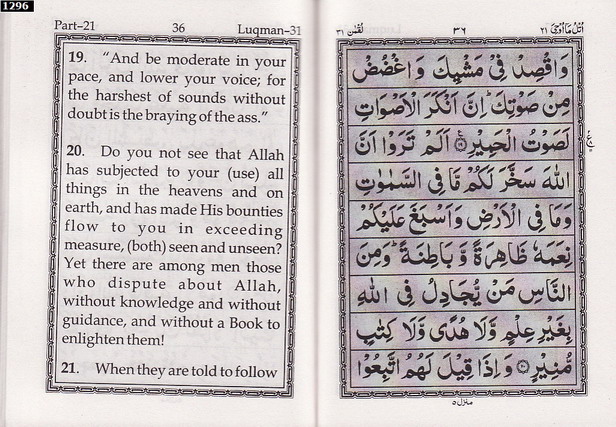 1296
Part–21 36 Luqman–31
19. “And be moderate in your
pace, and lower your voice; for
the harshest of sounds without
doubt is the braying of the ass.”
20. Do you not see that Allah
has subjected to your (use) all
things in the heavens and on
earth, and has made His bounties
flow to you in exceeding
measure, (both) seen and unseen?
Yet there are among men those
who dispute about Allah,
without knowledge and without
guidance, and without a Book to
enlighten them!
21. When they are told to follow
اُتْلُ مَآ اُوْحِیَ ۲۱ ۳۶ لقمٰن ۳۱
وَاقْصِدْ فِیْ مَشْیِكَ وَاغْضُضْ
مِنْ صَوْتِكَ ؕ اِنَّ اَنْكَرَ الْاَصْوَاتِ
لَصَوْتُ الْحَمِیْرِ ۟۱۹ اَلَمْ تَرَوْا اَنَّ
اللّٰهَ سَخَّرَ لَكُمْ مَّا فِی السَّمٰوٰتِ
وَمَا فِی الْاَرْضِ وَاَسْبَغَ عَلَیْكُمْ
نِعَمَهٗ ظَاهِرَةً وَّبَاطِنَةً ؕ وَمِنَ
النَّاسِ مَنْ یُّجَادِلُ فِی اللّٰهِ
بِغَیْرِ عِلْمٍ وَّلَا هُدًی وَّلَا كِتٰبٍ
مُّنِیْرٍ ۟۲۰ وَاِذَا قِیْلَ لَهُمُ اتَّبِعُوْا
منزل ۵